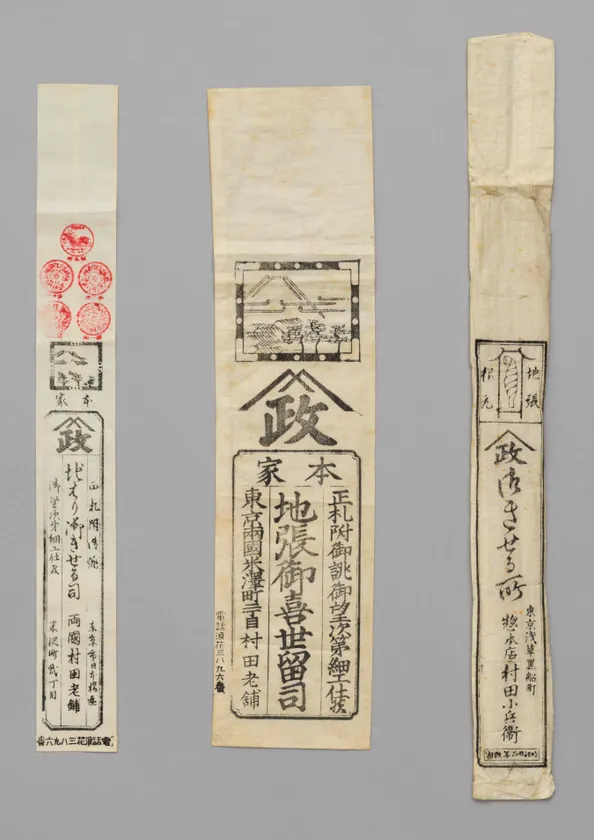 本家
政
正札附御誂
東京市日本橋區
地はり御きせる司
兩國村田老舗
御望次第細工仕候
米沢町貳丁目
電話浪花三八九六番
政
本家
正札附御誂御望次第細工仕候
地張御喜世留司
東京兩國米澤町二丁目 村田老舗
電話浪花三八九六番
地張
根元
政
御きせる所
東京浅草黒船町
惣本店村田小兵衞